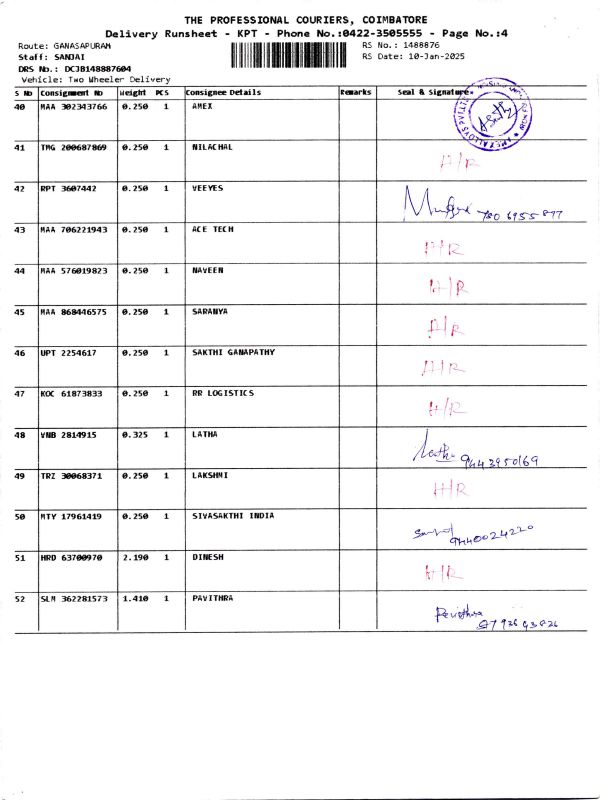 THE PROFESSIONAL COURIERS, COIMBATORE
Delivery Runsheet - KPT - Phone No.:0422-3505555 - Page No.:4
Route: GANASAPURAM RS No.: 1488876
Staff: SANJAI RS Date: 10-Jan-2025
DRS No.: DCJB148887604
Vehicle: Two Wheeler Delivery
S No Consignment No Weight PCS Consignee Details Remarks Seal & Signature
40 MAA 302343766 0.250 1 AMEX
41 TMG 200687869 0.250 1 NILACHAL A/R
42 RPT 3607442 0.250 1 VEEYES
43 MAA 706221943 0.250 1 ACE TECH A/R
44 MAA 576019823 0.250 1 NAVEEN A/R
45 MAA 868446575 0.250 1 SARANYA A/R
46 UPT 2254617 0.250 1 SAKTHI GANAPATHY A/R
47 KOC 61873833 0.250 1 RR LOGISTICS A/R
48 VNB 2814915 0.325 1 LATHA Latha 9443950169
49 TRZ 30068371 0.250 1 LAKSHMI A/R
50 MTY 17961419 0.250 1 SIVASAKTHI INDIA 9440024220
51 HRD 63700970 2.190 1 DINESH A/R
52 SLM 362281573 1.410 1 PAVITHRA Pavithra